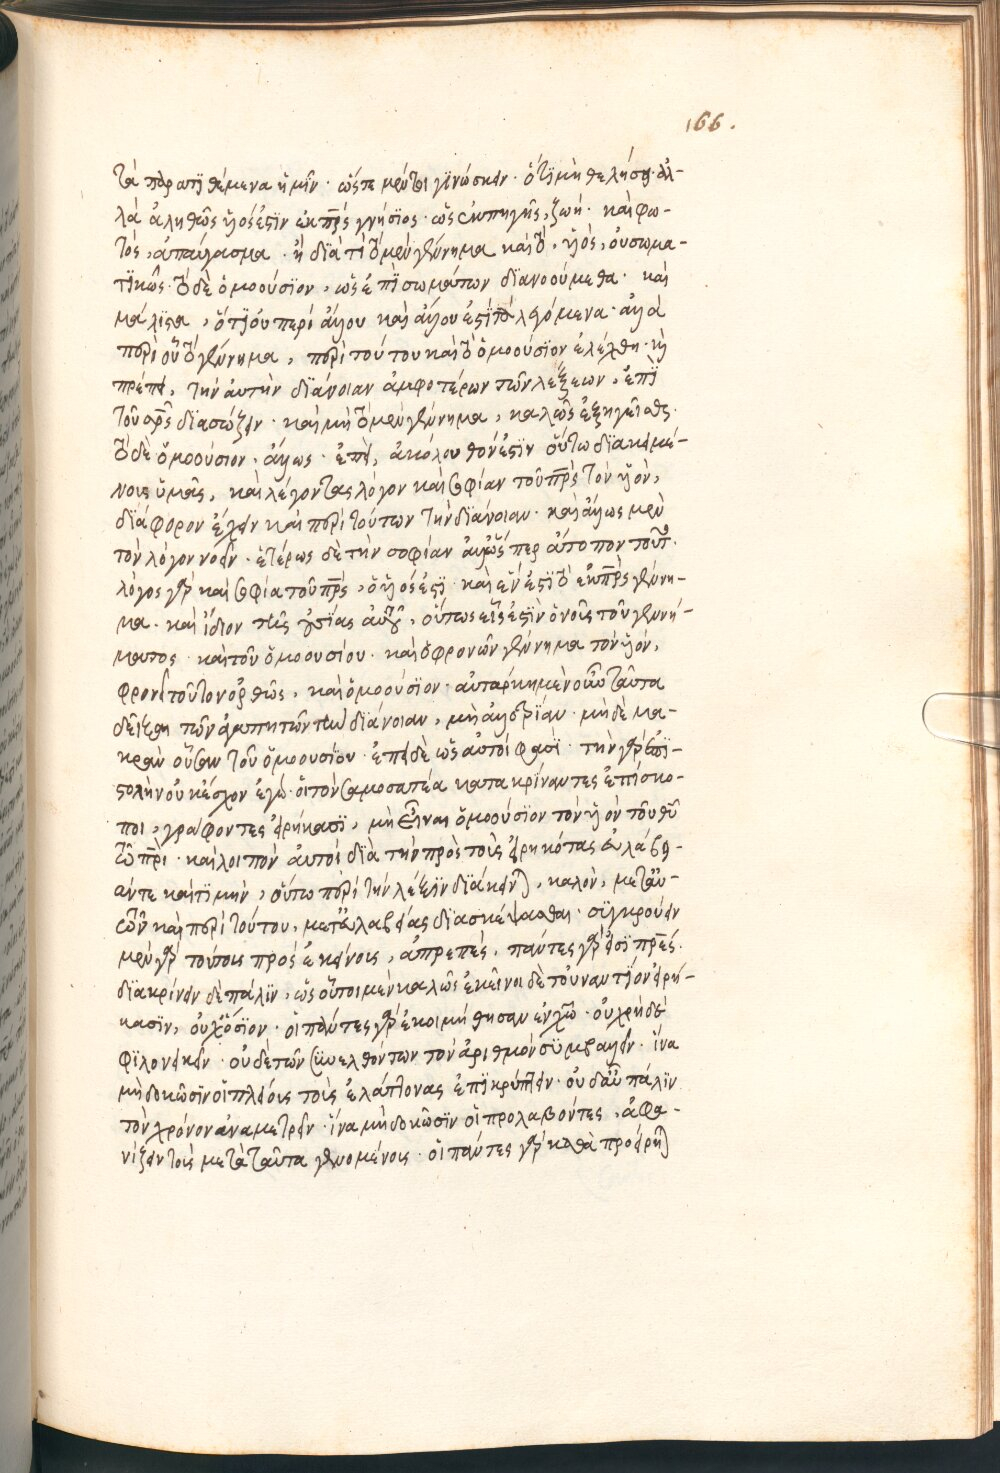 166.
τὰ παρατϊθέμενα ἡμῖν · ὥστε μέντοι γϊνώσκειν · ὅτϊ μὴ θελήσει · ἀλ-
λὰ ἀληθῶς ϋἱός ἐστϊν ἐκ π̅ρ̅ς γνήσϊος · ὡς ἐκ πηγῆς, ζωή · καὶ φω-
τὸς, ἀπαύγασμα · ἢ δϊατὶ τὸ μὲν γέννημα καὶ τὸ, ϋἱὸς, οὐ σωμα-
τϊκῶς · τὸ δὲ ὁμοούσϊον, ὡς ἐπϊ σωμάτων δϊανοούμεθα · καὶ
μάλϊστα, ὅτϊ οὐ περὶ ἄλλου καὶ ἄλλου ἐστϊ τὰ λεγόμενα · ἀλλὰ
περὶ οὗ τὸ γέννημα, περὶ τούτου καὶ τὸ ὁμοούσϊον ἐλέχθη · καὶ
πρέπει, τὴν αὐτὴν δϊάνοιαν ἀμφοτέρων τῶν λέξεων, ἐπϊ
τοῦ σ̅ρ̅ς δϊασώζειν · καὶ μὴ τὸ μὲν γέννημα, καλῶς ἐξηγεῖσθαι ·
τὸ δὲ ὁμοούσιον · ἄλλως · ἐπεὶ, ἀκόλουθόν ἐστϊν οὕτω δϊακειμέ-
νοις ὑμᾶς, καὶ λέγοντας λόγον καὶ σοφίαν τοῦ π̅ρ̅ς τὸν ϋἱὸν,
δϊάφορον ἔχειν καὶ περὶ τούτων τὴν δϊάνοιαν · καὶ ἄλλως μὲν
τὸν λόγον νοεῖν · ἑτέρως δὲ τὴν σοφίαν ἀλλ' ὥσπερ ἄτοπον τοῦτο ·
λόγος γὰρ καὶ σοφία τοῦ π̅ρ̅ς, ὁ ϋἱός ἐστϊ · καὶ ἕν ἐστϊ τὸ ἐκ π̅ρ̅ς γέννη-
μα · καὶ ἴδιον τῆς οὐσίας αὐτοῦ, οὕτως εἷς ἐστϊν ὁ νοῦς τοῦ γεννή-
ματος · καὶ τοῦ ὁμοουσίου · καὶ ὁ φρονῶν γέννημα τὸν ϋἱόν,
φρονεῖ τοῦτον ὀρθῶς, καὶ ὁμοούσϊον · αὐτάρκη μὲν οὖν ταῦτα
δεῖξαι τῶν ἀγαπητῶν τὴν δϊάνοιαν, μὴ ἀλλοτρίαν · μὴ δὲ μα-
κρὰν οὖσαν τοῦ ὁμοουσίου · ἐπεὶ δὲ ὡς αὐτοί φασϊ · τὴν γὰρ ἐπϊ-
στολὴν οὐκ ἔσχον ἐγώ · οἱ τὸν σαμοσατέα κατακρίναντες ἐπίσκο-
ποι, γράφοντες εἰρήκασϊ, μὴ εἶναι ὁμοούσϊον τὸν ϋἱὸν τοῦ θ̅υ̅
τῷ π̅ρ̅ι · καὶ λοιπὸν αὐτοὶ δϊὰ τὴν πρὸς τοὺς εἰρηκότας εὐλάβει-
αν τε καὶ τϊμὴν, οὕτω περὶ τὴν λέξϊν δϊάκεινται, καλὸν, μετ' αὐ-
τῶν καὶ περὶ τούτου, μετ' εὐλαβείας δϊασκέψασθαι · συγκρούειν
μὲν γὰρ τούτοις πρὸς ἐκείνοις, ἀπρεπές, πάντες γάρ εἰσϊ π̅ρ̅ες ·
δϊακρίνειν δὲ πάλϊν, ὡς οὗτοι μὲν καλῶς ἐκεῖνοι δὲ τοὐναντίον εἰρή-
κασϊν, οὐχ ὅσϊον · οἱ πάντες γὰρ ἐκοιμήθησαν ἐν χ̅ω̅ · οὐ χρὴ δὲ
φϊλονεικεῖν · οὐδὲ τῶν συνελθόντων τὸν ἀριθμὸν συμβάλλειν · ἵνα
μὴ δοκῶσϊν οἱ πλείους τοὺς ἐλάττονας ἐπϊκρύπτειν · οὐδ' αὖ πάλϊν
τὸν χρόνον ἀναμετρεῖν · ἵνα μὴ δοκῶσϊν οἱ προλαβόντες, ἀφα-
νίζειν τοὺς μετὰ ταῦτα γενομένους · οἱ πάντες γὰρ καθὰ προείρηται